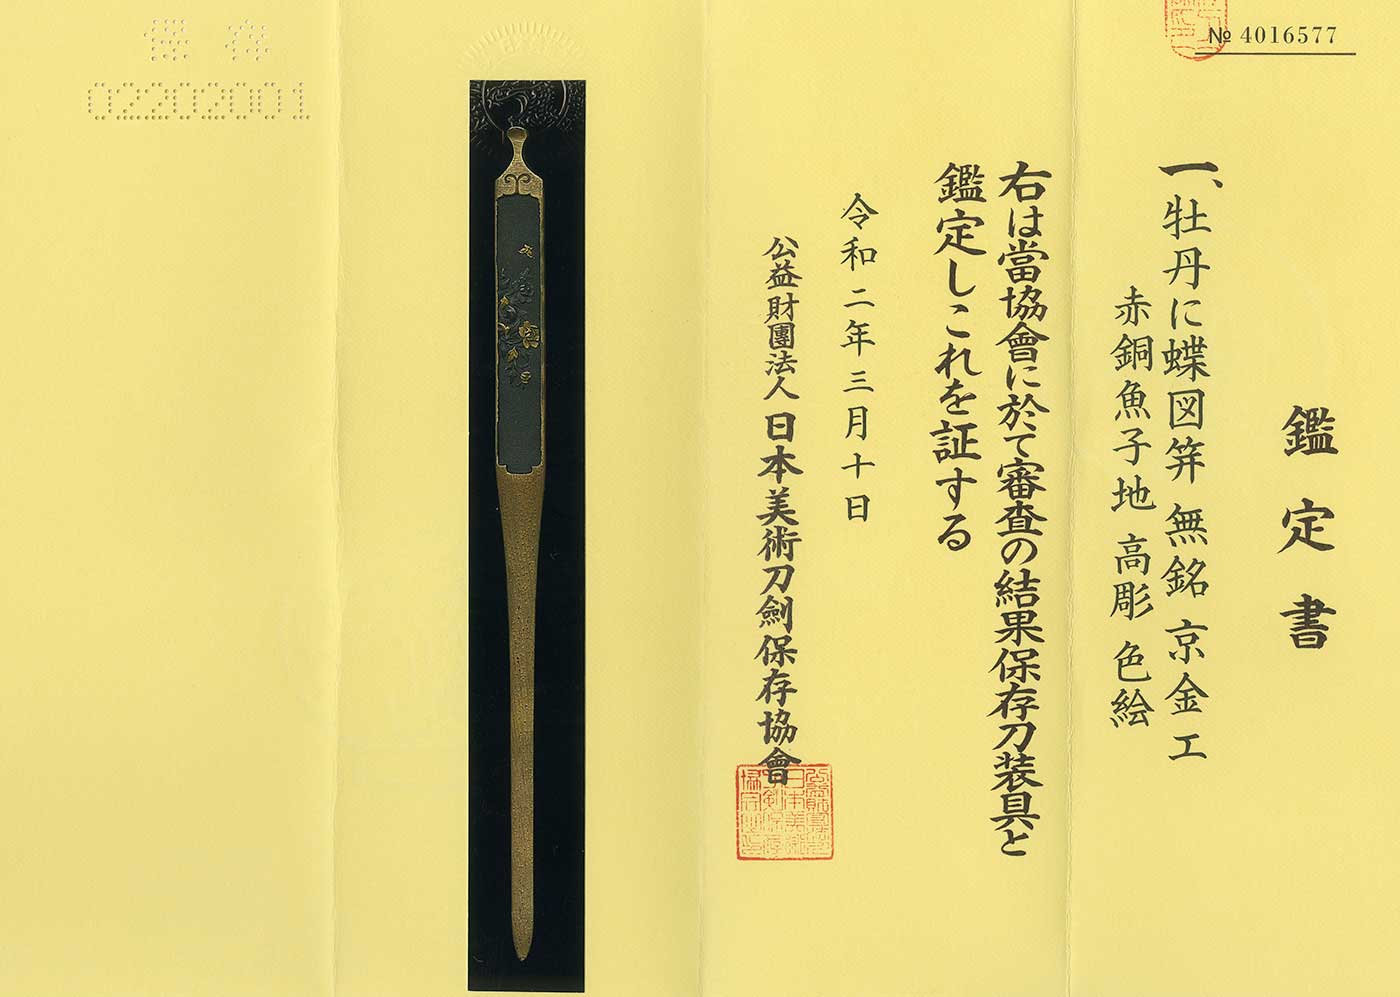 № 4016577
鑑定書
一、牡丹に蝶図笄 無銘 京金工
赤銅魚子地 高彫 色絵
右は當協會に於て審査の結果保存刀装具と
鑑定しこれを証する
令和二年三月十日
公益財團法人 日本美術刀劍保存協會
保存
02202001